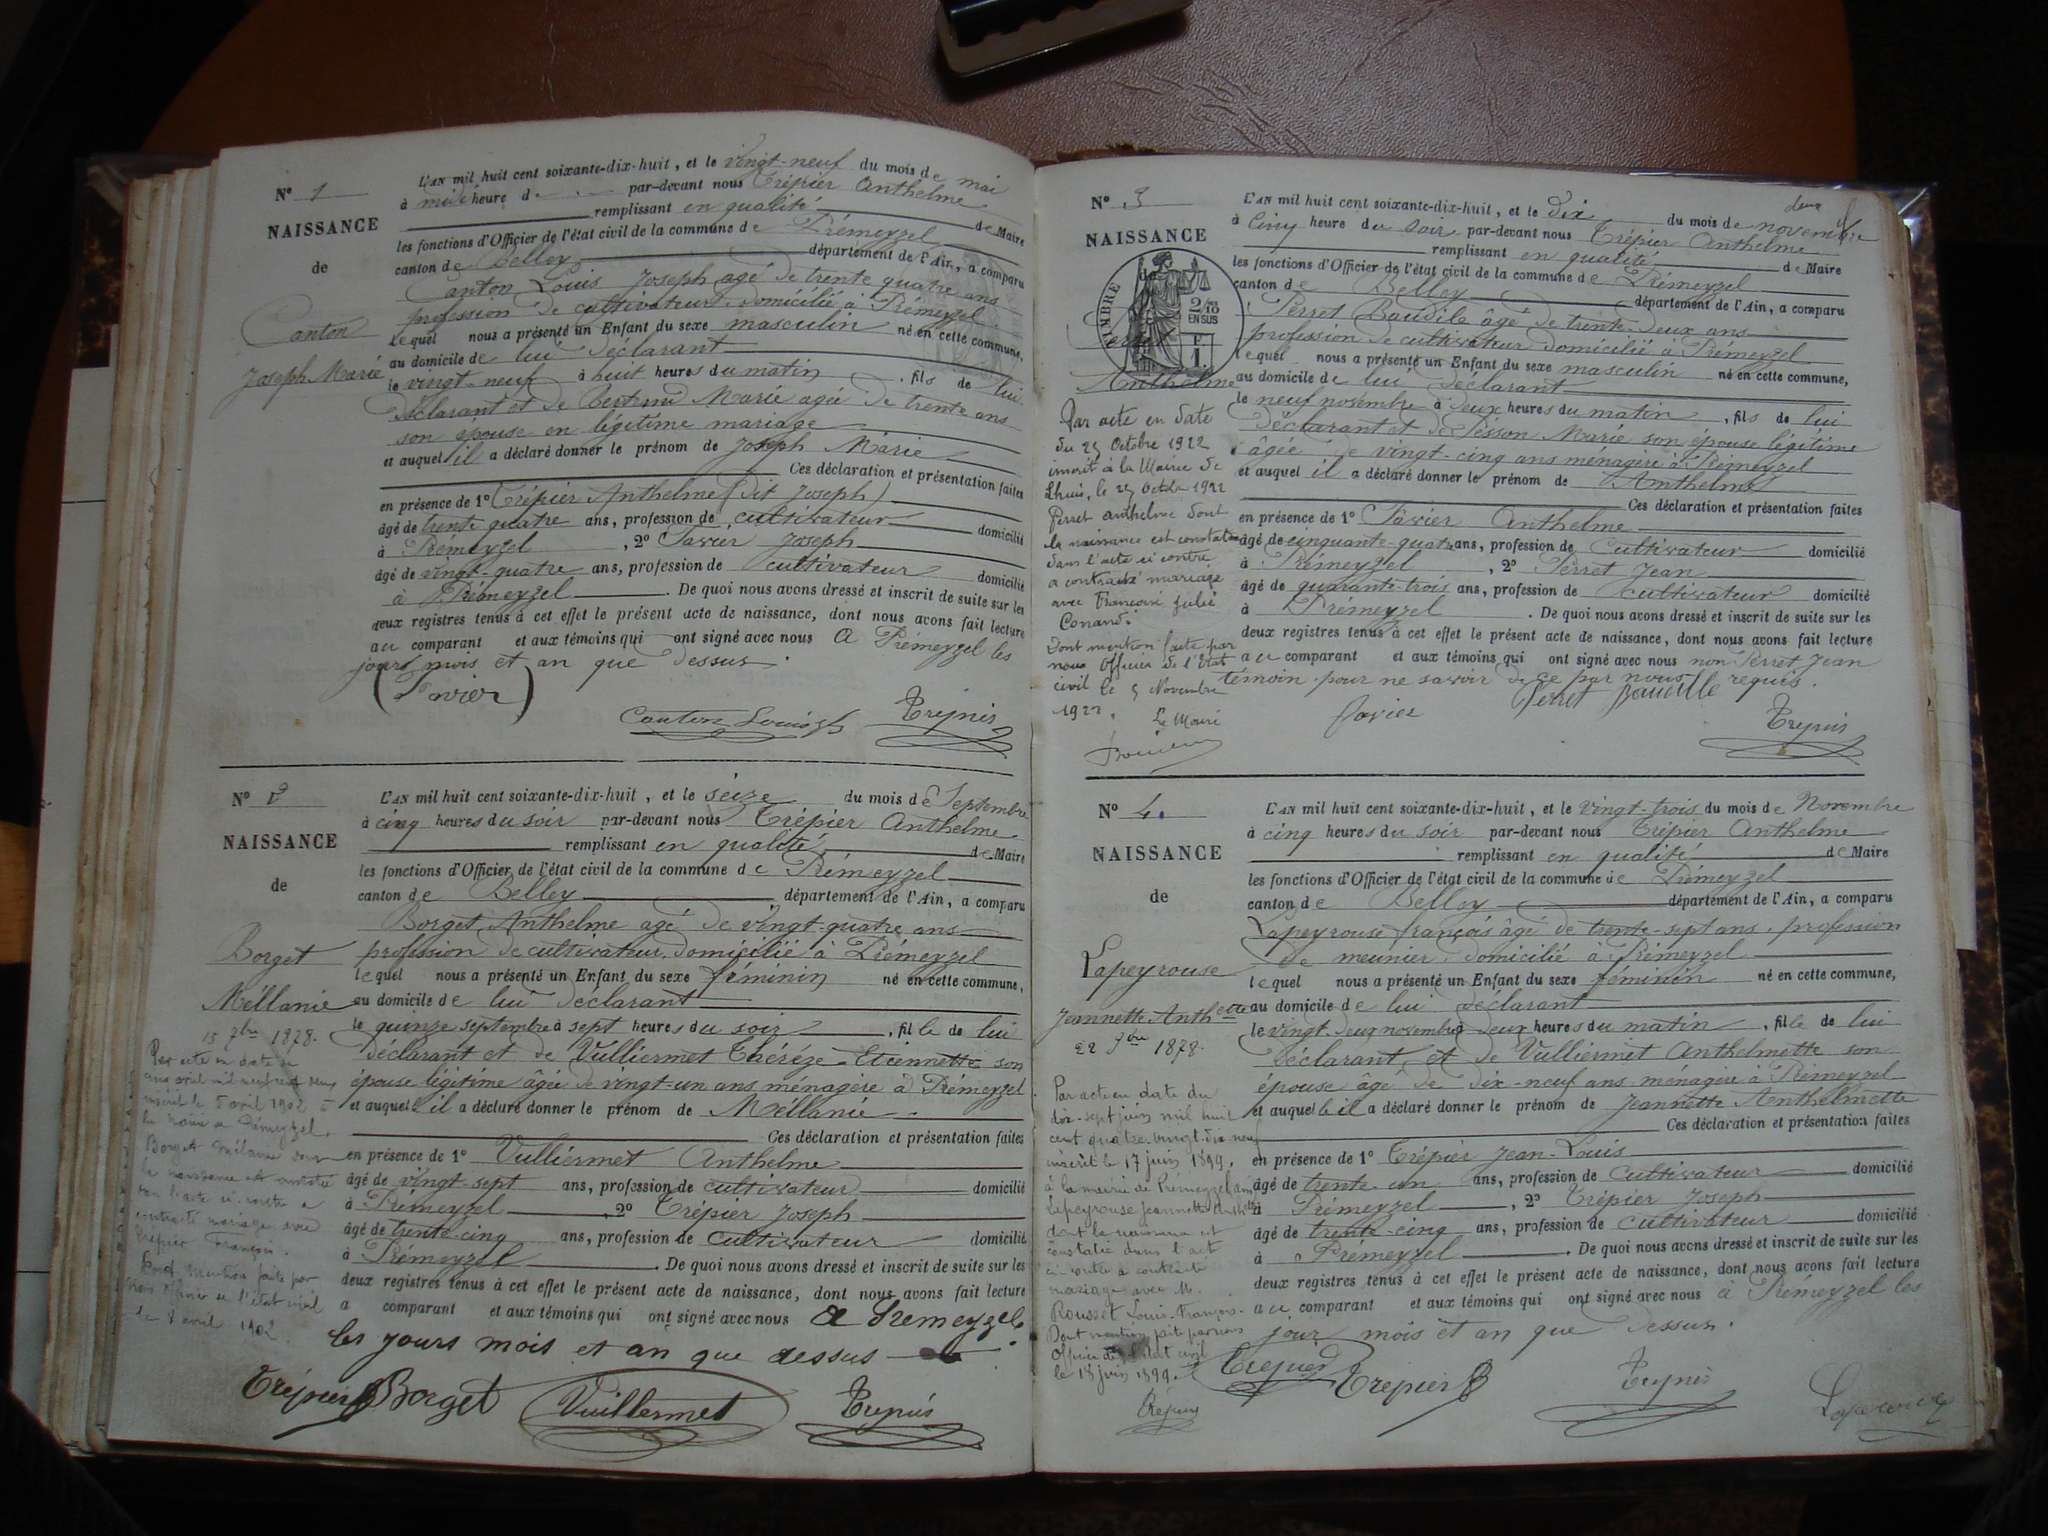 N° 1
NAISSANCE
de
Canton
Joseph Marie
L'AN mil huit cent soixante-dix-huit, et le vingt-neuf du mois de mai
à midi heure d par-devant nous Trépier Anthelme
remplissant en qualité de Maire
les fonctions d'Officier de l'état civil de la commune de Prémeyzel
canton de Belley département de l'Ain, a comparu
Canton Louis Joseph agé de trente quatre ans
profession de cultivateur domicilié à Prémeyzel
lequel nous a présenté un Enfant du sexe masculin né en cette commune,
au domicile de lui déclarant
le vingt-neuf à huit heures du matin, fils de lui
déclarant et de Marie agée de trente ans
son épouse en légitime mariage
et auquel il a déclaré donner le prénom de Joseph Marie
Ces déclaration et présentation faites
en présence de 1° Trépier Anthelme (dit Joseph)
âgé de trente quatre ans, profession de cultivateur domicilié
à Prémeyzel, 2° Savier Joseph
âgé de vingt-quatre ans, profession de cultivateur domicilié
à Prémeyzel. De quoi nous avons dressé et inscrit de suite sur les
deux registres tenus à cet effet le présent acte de naissance, dont nous avons fait lecture
au comparant et aux témoins qui ont signé avec nous A Prémeyzel les
jours mois et an que dessus.
(Savier)
Canton Louis Jh
N° 2
NAISSANCE
de
Borget
Méllanie
15 7bre 1878.
Par acte en date du
cinq avril mil neuf cent deux
inscrit le 5 avril 1902 à
la mairie de Prémeyzel,
Borget Mélanie dont
la naissance est constatée
dans l'acte ci-contre a
contracté mariage avec
Trépier François.
Dont mention faite par
nous officier de l'état civil
le 8 avril 1902
L'AN mil huit cent soixante-dix-huit, et le seize du mois de Septembre
à cinq heures du soir par-devant nous Trépier Anthelme
remplissant en qualité de Maire
les fonctions d'Officier de l'état civil de la commune de Prémeyzel
canton de Belley département de l'Ain, a comparu
Borget Anthelme agé de vingt-quatre ans
profession de cultivateur domicilié à Prémeyzel
lequel nous a présenté un Enfant du sexe féminin né en cette commune,
au domicile de lui déclarant
le quinze septembre à sept heures du soir, fille de lui
déclarant et de Vulliermet Thérèze Etiennette son
épouse légitime âgée de vingt-un ans ménagère à Prémeyzel
et auquel il a déclaré donner le prénom de Méllanie
Ces déclaration et présentation faites
en présence de 1° Vulliermet Anthelme
âgé de vingt-sept ans, profession de cultivateur domicilié
à Prémeyzel, 2° Trépier Joseph
âgé de trente-cinq ans, profession de cultivateur domicilié
à Prémeyzel. De quoi nous avons dressé et inscrit de suite sur les
deux registres tenus à cet effet le présent acte de naissance, dont nous avons fait lecture
a comparant et aux témoins qui ont signé avec nous A Premeyzel
les jours mois et an que dessus
Trépier Borget Vuillermet
deux
N° 3
NAISSANCE
de
TIMBRE
2/10
EN SUS
Perret
Anthelme
Par acte en date
du 25 Octobre 1922
inscrit à la Mairie de
Lhuis, le 25 Octobre 1922
Perret Anthelme dont
la naissance est constatée
dans l'acte ci contre
a contracté mariage
avec Françoise Julie
Conand.
Dont mention faite par
nous Officier de l'état
civil le 5 Novembre
1922.
Le Maire
L'AN mil huit cent soixante-dix-huit, et le dix du mois de novembre
à Cinq heure du soir par-devant nous Trépier Anthelme
remplissant en qualité de Maire
les fonctions d'Officier de l'état civil de la commune de Prémeyzel
canton de Belley département de l'Ain, a comparu
Perret Baudile âgé de trente-deux ans
profession de cultivateur domicilié à Prémeyzel
lequel nous a présenté un Enfant du sexe masculin né en cette commune,
au domicile de lui déclarant
le neuf novembre à deux heures du matin, fils de lui
déclarant et de Pesson Marie son épouse légitime
âgée de vingt-cinq ans ménagère à Prémeyzel
et auquel il a déclaré donner le prénom de Anthelme
Ces déclaration et présentation faites
en présence de 1° Savier Anthelme
âgé de cinquante-quatre ans, profession de Cultivateur domicilié
à Prémeyzel, 2° Perret Jean
âgé de quarante-trois ans, profession de Cultivateur domicilié
à Prémeyzel. De quoi nous avons dressé et inscrit de suite sur les
deux registres tenus à cet effet le présent acte de naissance, dont nous avons fait lecture
au comparant et aux témoins qui ont signé avec nous non Perret Jean
temoin pour ne savoir de ce par nous requis.
Savier
Perret Baudille
N° 4.
NAISSANCE
de
Lapeyrouse
Jeannette Anthette
22 9bre 1878.
Par acte en date du
dix-sept juin mil huit
cent quatre-vingt-dix-neuf
inscrit le 17 juin 1899,
à la mairie de Prémeyzel
Lapeyrouse Jeannette
dont la naissance est
constatée dans l'acte
ci-contre a contracté
mariage avec M.
Rousset Louis-François.
Dont mention faite par nous
Officier de l'état civil
le 18 juin 1899.
L'AN mil huit cent soixante-dix-huit, et le vingt-trois du mois de Novembre
à cinq heures du soir par-devant nous Trépier Anthelme
remplissant en qualité de Maire
les fonctions d'Officier de l'état civil de la commune de Prémeyzel
canton de Belley département de l'Ain, a comparu
Lapeyrouse françois âgé de trente-sept ans, profession
de meunier domicilié à Prémeyzel
lequel nous a présenté un Enfant du sexe féminin né en cette commune,
au domicile de lui déclarant
le vingt-deux novembre à deux heures du matin, fille de lui
déclarant et de Vulliermet Anthelmette son
épouse âgé de dix-neuf ans ménagère à Prémeyzel
et auquelle il a déclaré donner le prénom de Jeannette Anthelmette
Ces déclaration et présentation faites
en présence de 1° Trépier Jean-Louis
âgé de trente-un ans, profession de Cultivateur domicilié
à Prémeyzel, 2° Trépier Joseph
âgé de trente-cinq ans, profession de cultivateur domicilié
à Prémeyzel. De quoi nous avons dressé et inscrit de suite sur les
deux registres tenus à cet effet le présent acte de naissance, dont nous avons fait lecture
au comparant et aux témoins qui ont signé avec nous à Prémeyzel les
jour mois et an que dessus.
Trepier